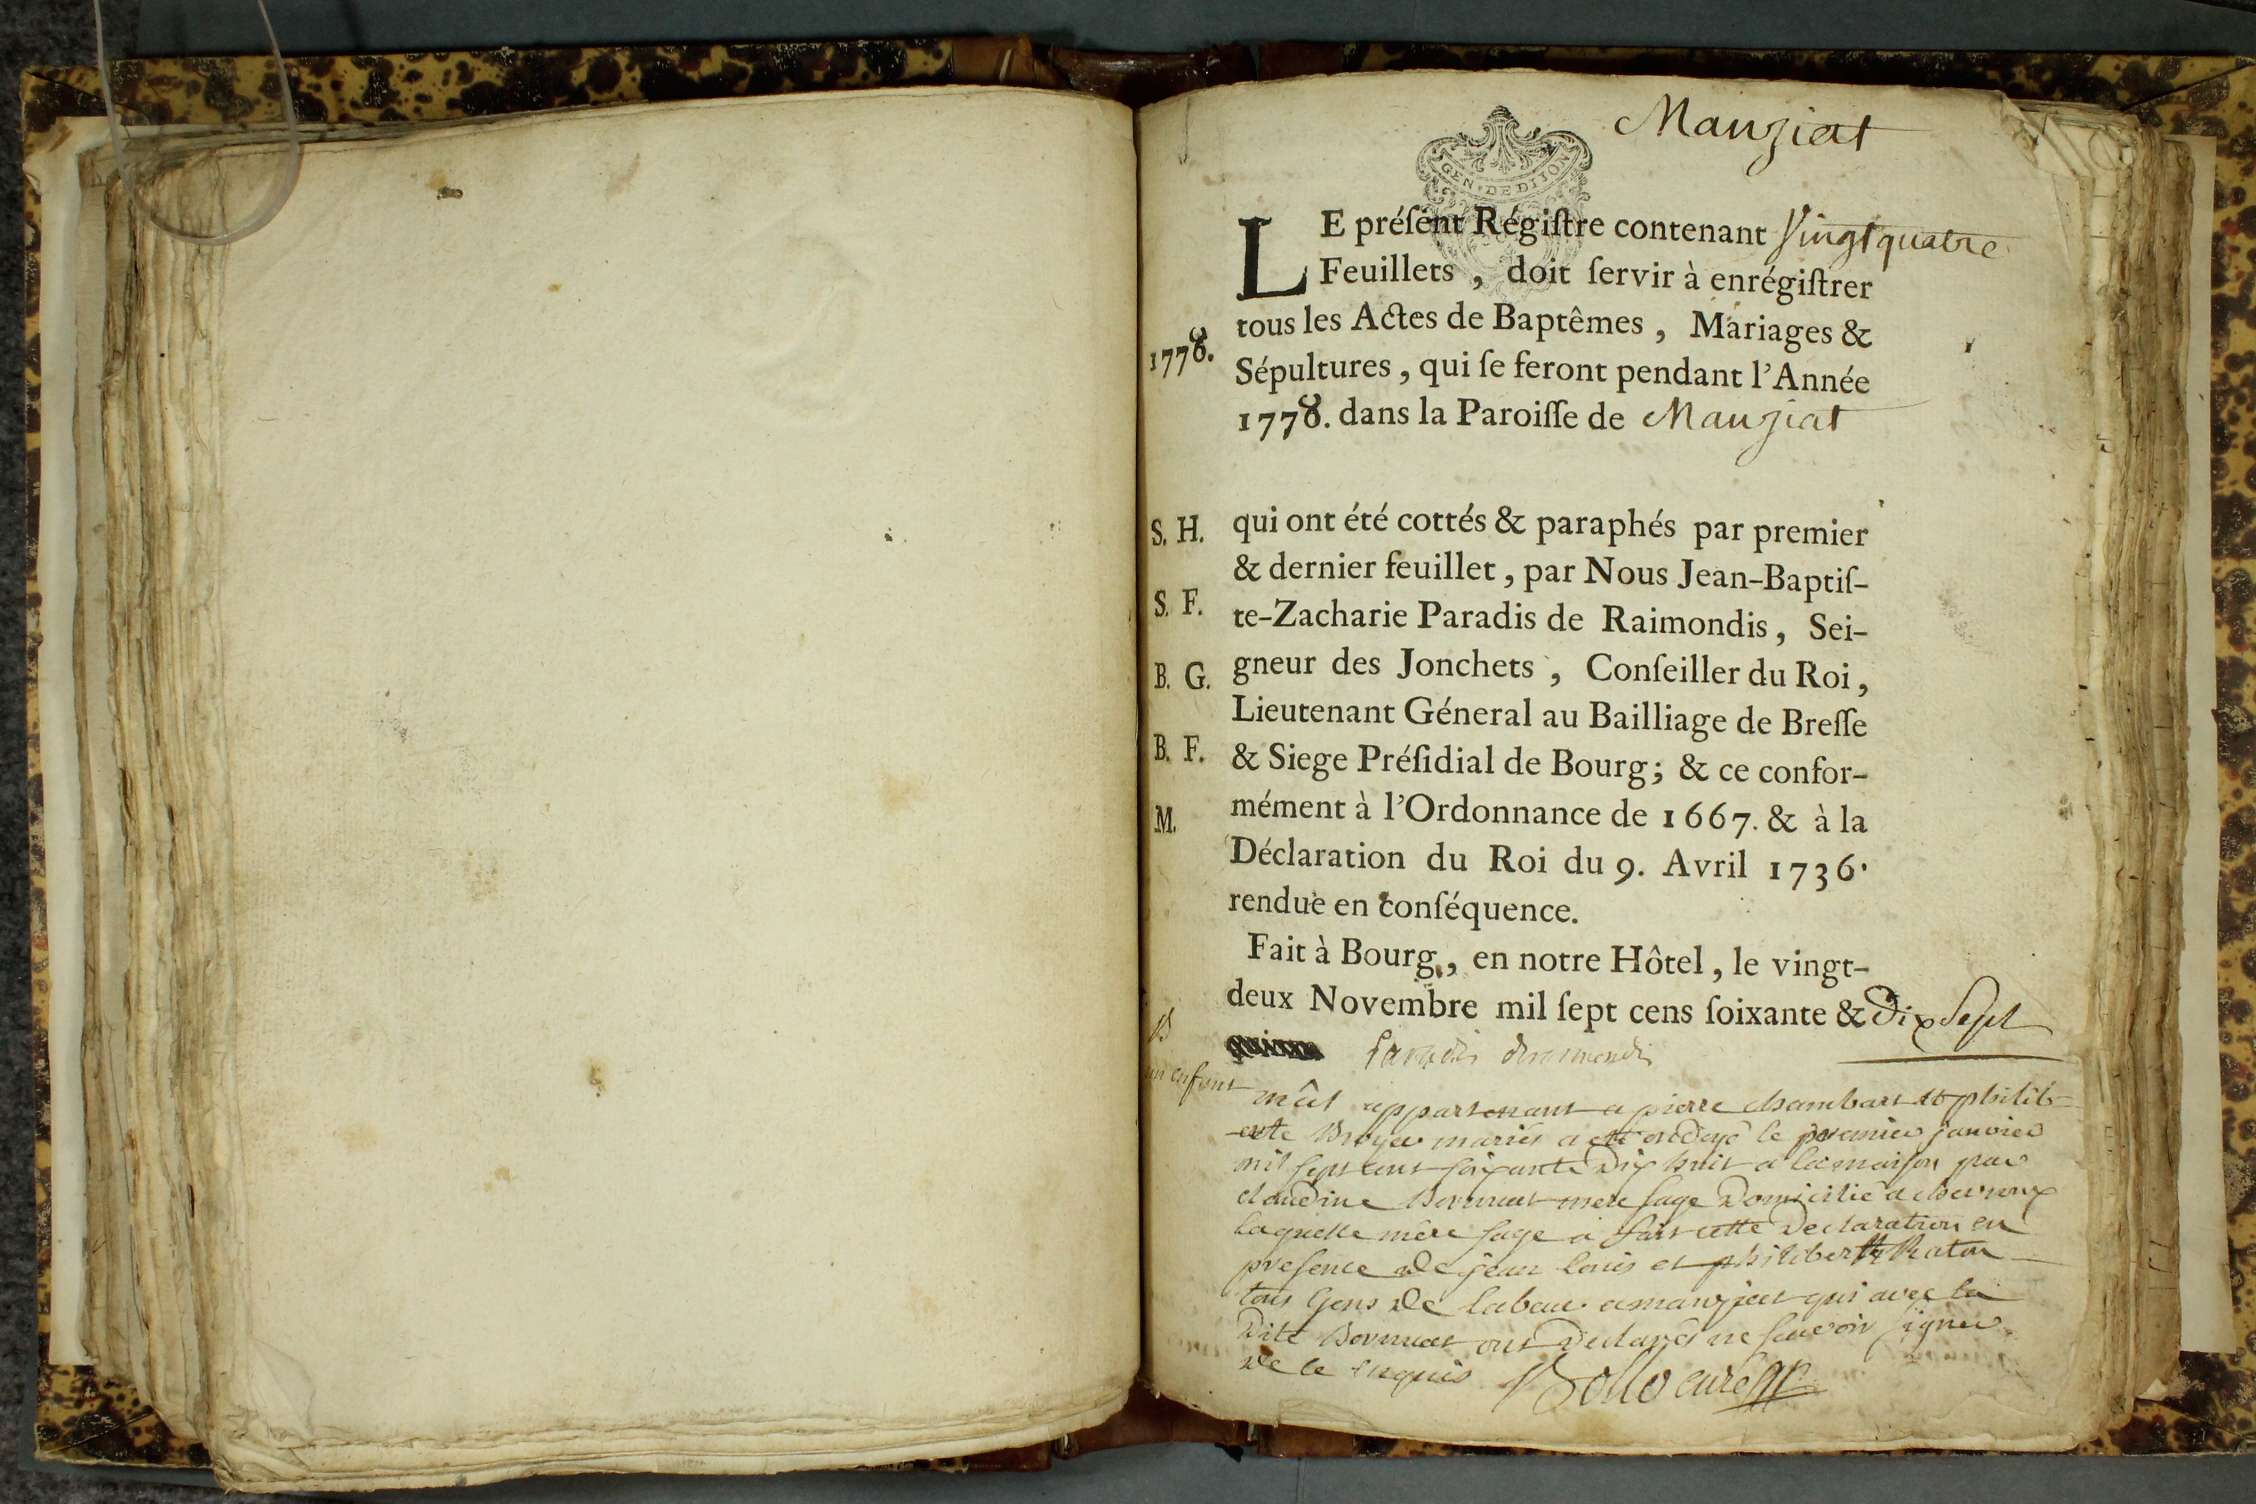 Manziat
GEN. DE DIJON
LE préſent Régiſtre contenant Vingt quatre
Feuillets, doit ſervir à enrégiſtrer
tous les Actes de Baptêmes, Mariages &
1778.
Sépultures, qui ſe feront pendant l'Année
1778. dans la Paroiſſe de Manziat
S. H.
qui ont été cottés & paraphés par premier
& dernier feuillet, par Nous Jean-Baptiſ-
S. F.
te-Zacharie Paradis de Raimondis, Sei-
B. G.
gneur des Jonchets, Conſeiller du Roi,
Lieutenant Géneral au Bailliage de Breſſe
B. F.
& Siege Préſidial de Bourg; & ce confor-
M.
mément à l'Ordonnance de 1667. & à la
Déclaration du Roi du 9. Avril 1736.
rendue en conſéquence.
Fait à Bourg, en notre Hôtel, le vingt-
deux Novembre mil ſept cens ſoixante & Dix Sept
Paradis
B
un enfant
mâl appartenant a pierre chambart et philib-
-erte Broyer mariés a eté ondoyé le premier janvier
mil sept cent soixante dix huit a la maison par
claudine mere sage Domicilié a chevroux
laquelle mère sage a fait cette declaration en
presence de jean louis et philibert
tous Gens de labeur a manziat qui avec la
dite ont declarés ne scavoir signer
de ce enquis curé